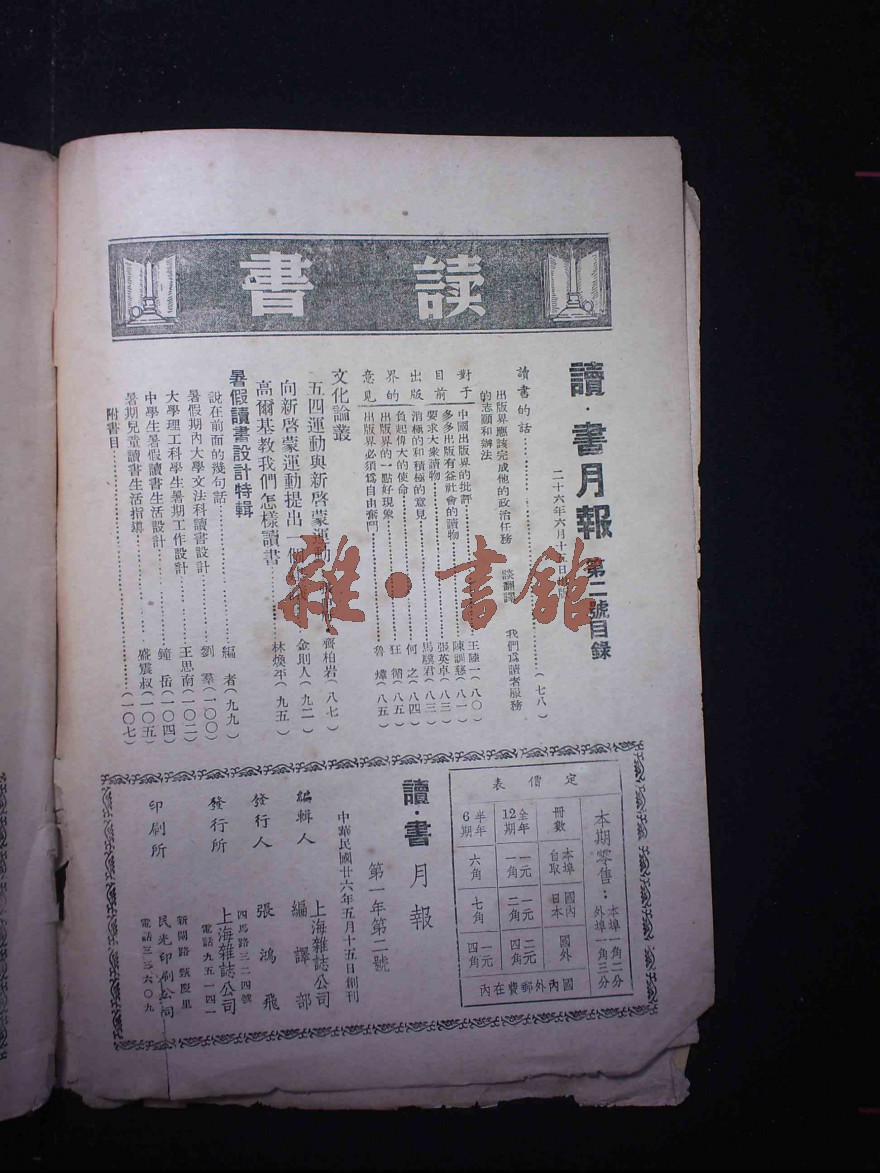 讀書
讀·書月報 第二號目錄
二十六年六月十五日出版
讀書的話……(七八)
出版界應該完成他的政治任務 談翻譯 我們為讀者服務
的志願和辦法
對于目前出版界的意見
中國出版界的批評……王陸一(八〇)
多多出版有益社會的讀物……陳訓慈(八一)
要求大衆讀物……張英卓(八三)
消極的和積極的意見……馬驥君(八三)
負起偉大的使命……何之(八四)
出版界的一點好現象……狂循(八五)
出版界必須為自由奮鬥……魯煒(八五)
文化論叢
五四運動與新啓蒙運動……齊柏岩(八七)
向新啓蒙運動提出一個……金則人(九二)
高爾基教我們怎樣讀書……林煥平(九五)
暑假讀書設計特輯
說在前面的幾句話……編者(九九)
暑假期內大學文法科讀書設計……劉羣(一〇〇)
大學理工科學生暑期工作設計……王思南(一〇二)
中學生暑假讀書生活設計……鐘岳(一〇四)
暑期兒童讀書生活指導……盛震叔(一〇五)
附書目……(一〇七)
雜·書館
定價表
本期零售：本埠一角二分 外埠一角三分
冊數 本埠自取 國內日本 國外
全年12期 一元一角 一元二角 二元四角
半年6期 六角 七角 一元四角
國內外郵費在內
讀·書月報
第一年第二號
中華民國廿六年五月十五日創刊
編輯人 上海雜誌公司編譯部
發行人 張鴻飛
發行所 四馬路三二四號
上海雜誌公司
電話九五一四一
印刷所 新閘路甄慶里
民光印刷公司
電話三三六〇九